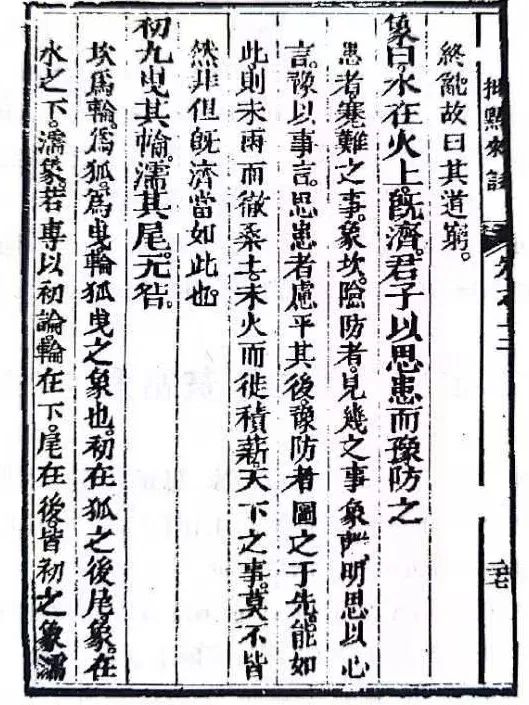 批點來註
卷之十三
終亂故曰其道窮。
象曰水在火上。旣濟。君子以思患而豫防之
患者蹇難之事。象坎。險防者。見幾之事象離明思以心
言。豫以事言。思患者慮乎其後。豫防者圖之于先。能如
此則未雨而徹桑土。未火而徙積薪。天下之事。莫不皆
然非但旣濟當如此也
初九曳其輪。濡其尾。无咎。
坎爲輪。爲狐。爲曳輪狐曳之象也。初在狐之後尾象。在
水之下。濡象。若專以初論輪在下。尾在後皆初之象濡